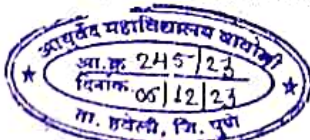 आयुर्वेद महाविद्यालय वाघोली
जा.क्र. 245/23
दिनांक 05/12/23
ता. हवेली, जि. पुणे